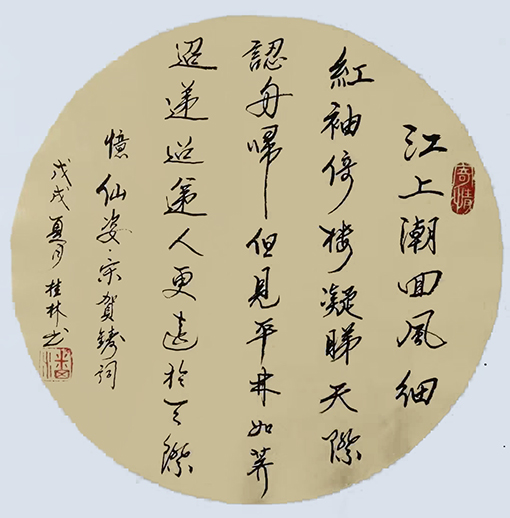 寄情
江上潮回風細
紅袖倚樓凝睇天際
認舟歸但見平林如薺
迢遞迢遞人更遠於天際
憶仙姿宋賀鑄詞
戊戌夏月桂林书